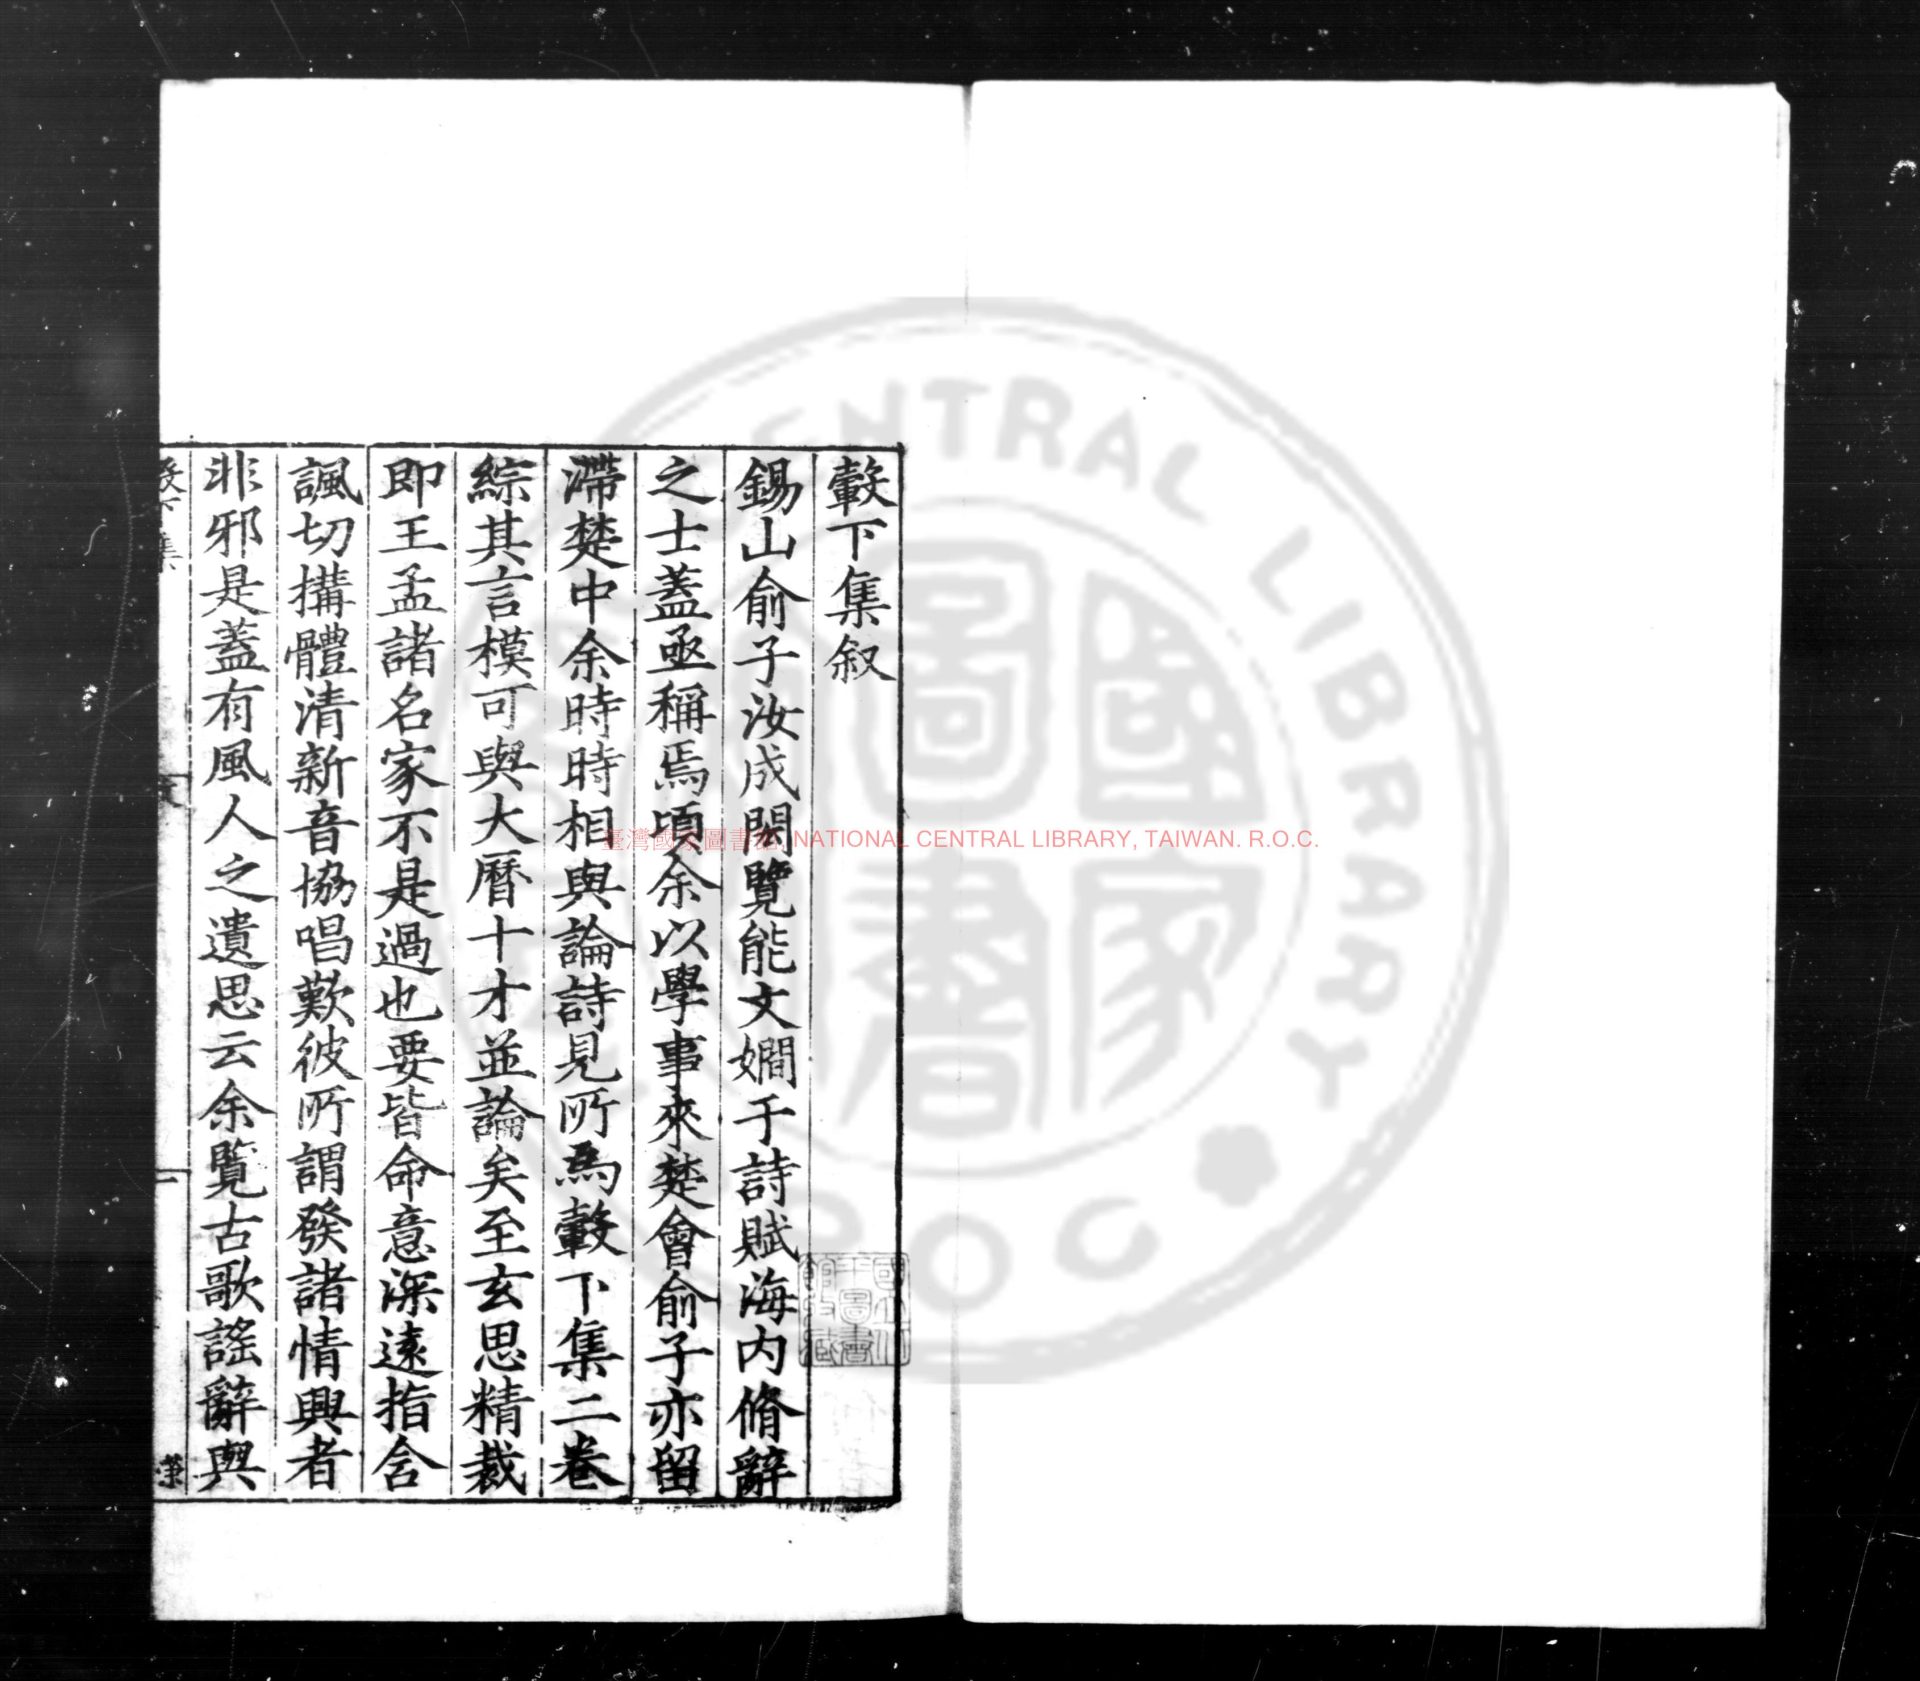 轂下集叙
錫山俞子汝成閎覽能文嫺于詩賦海内脩辭
之士蓋亟稱焉頃余以學事來楚會俞子亦留
滯楚中余時時相與論詩見所爲轂下集二卷
綜其言模可與大曆十才並論矣至玄思精裁
即王孟諸名家不是過也要皆命意深遠指含
諷切搆體清新音協唱歎彼所謂發諸情興者
非邪是蓋有風人之遺思云余覽古歌謠辭與
臺灣國家圖書館, NATIONAL CENTRAL LIBRARY, TAIWAN. R.O.C.
CENTRAL LIBRARY
ROC
國家圖書